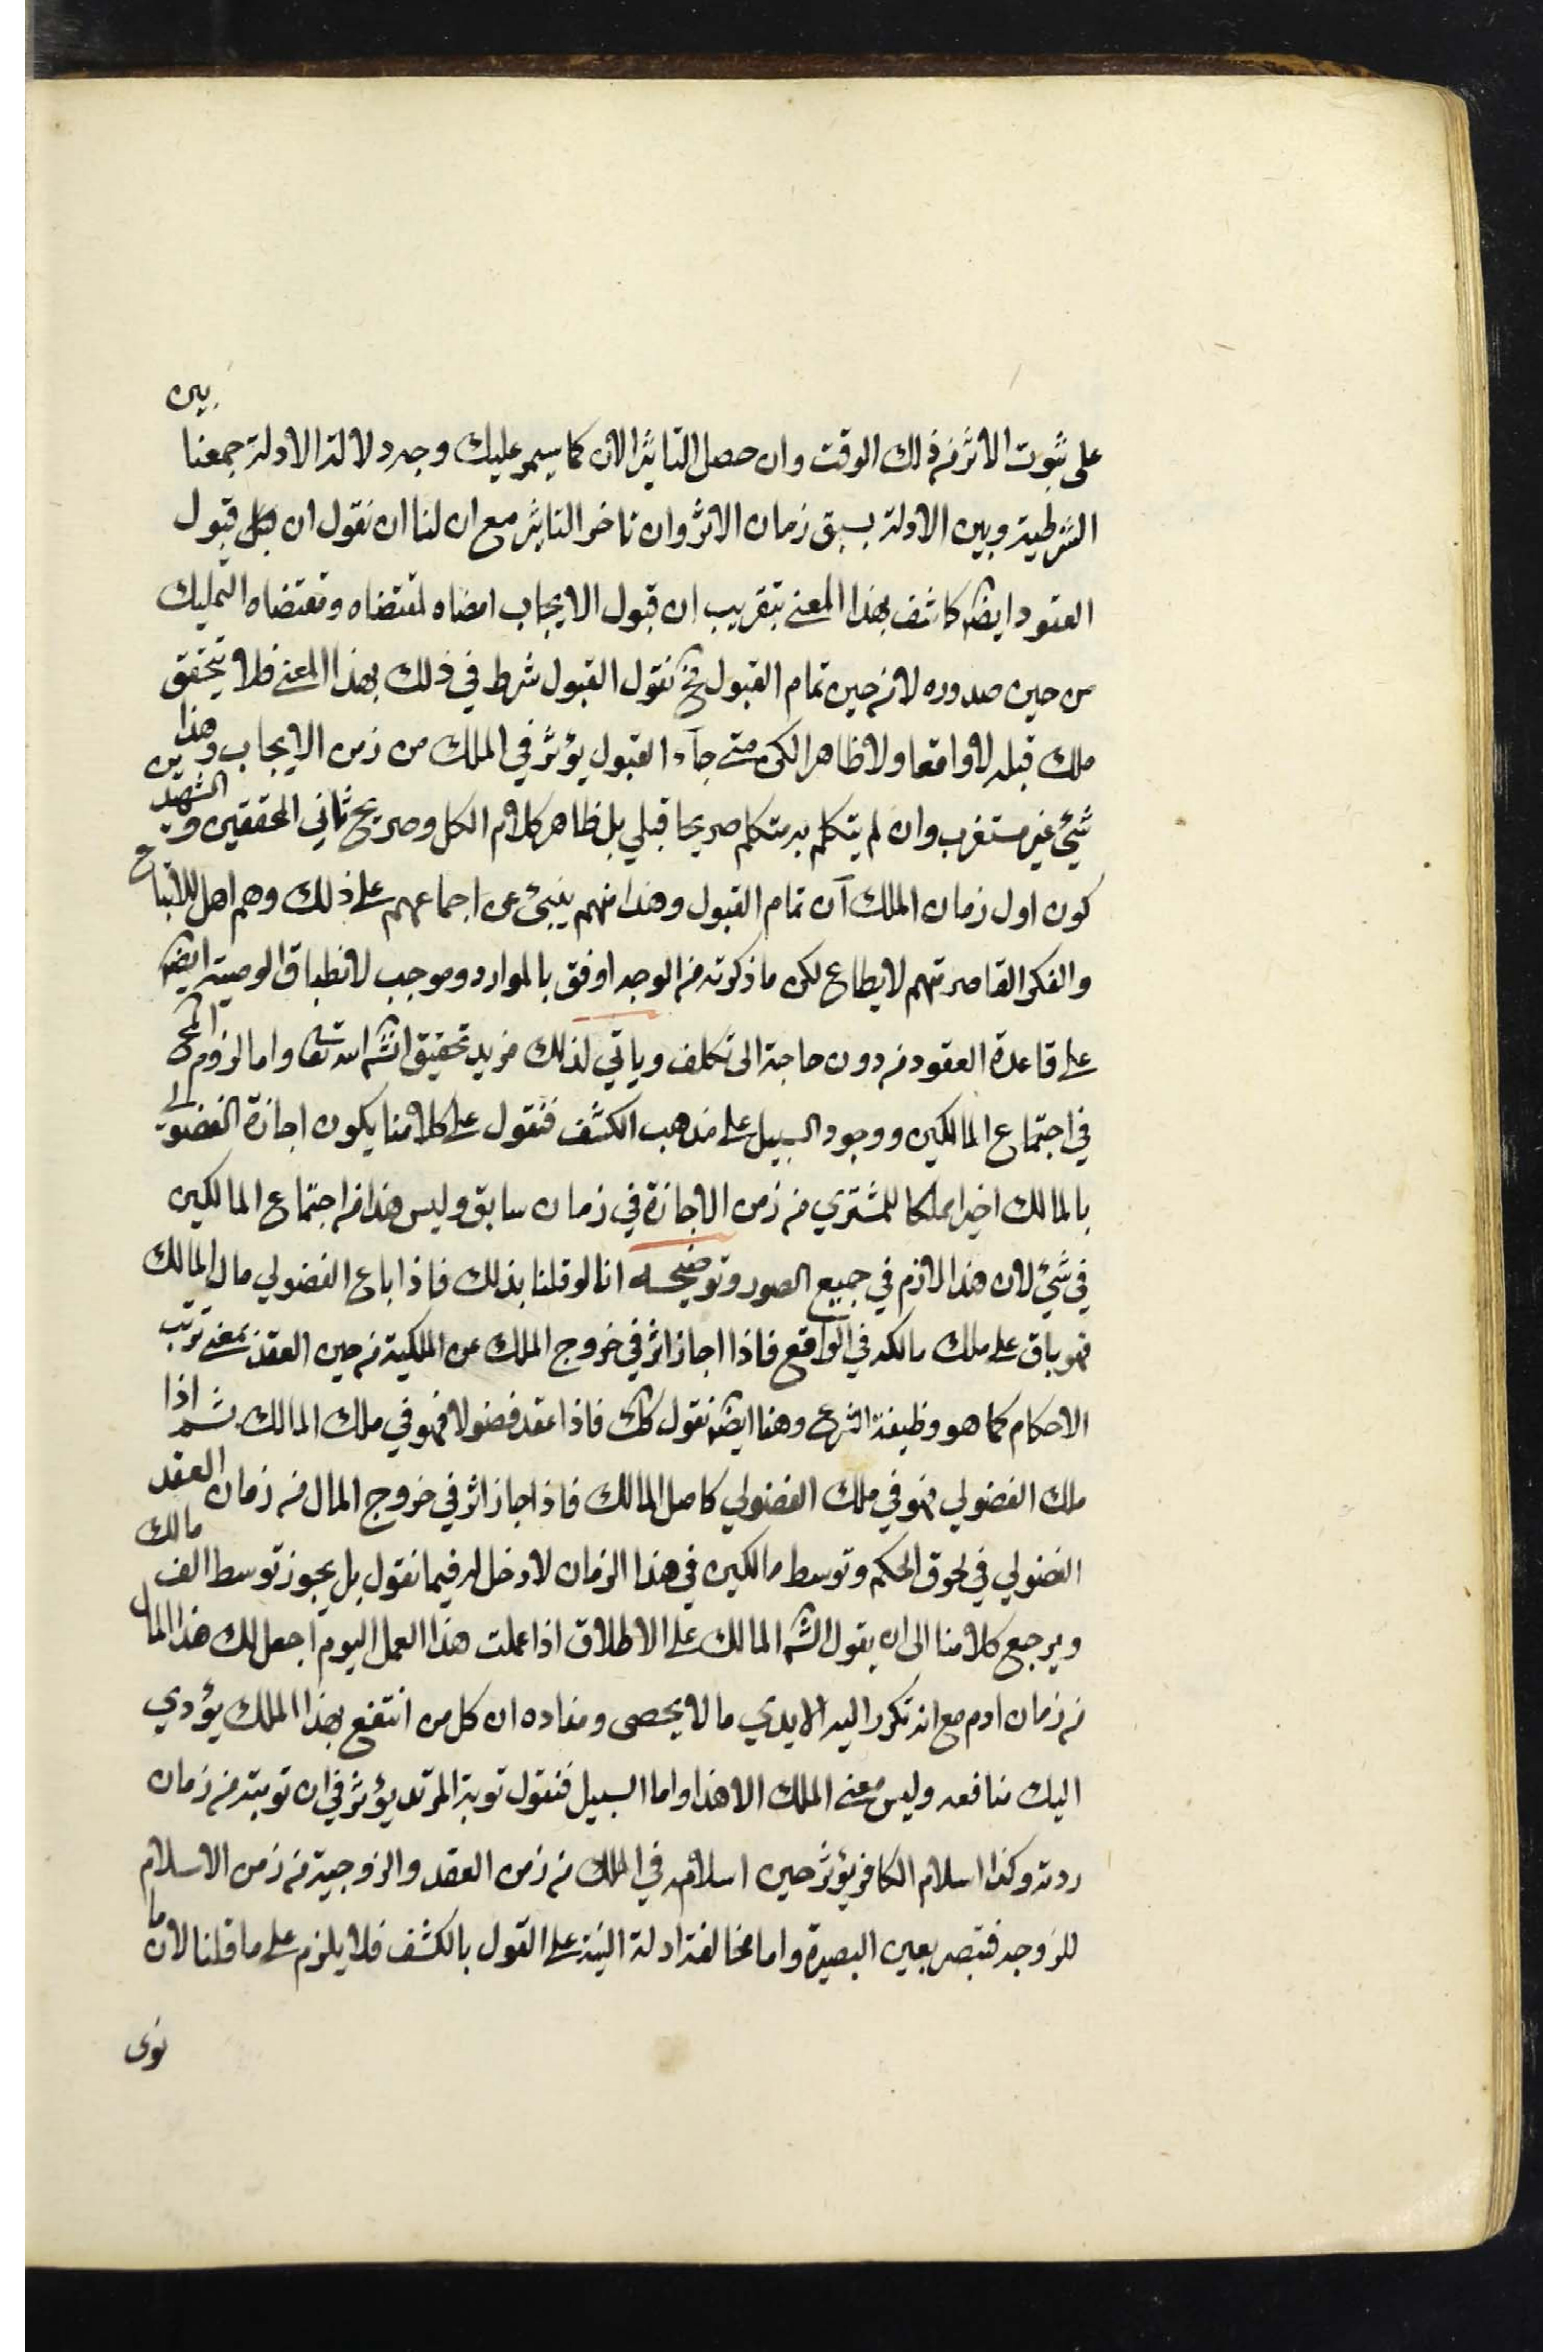 على ثبوت الاثر من ذلك الوقت وان حصل التاثير الان كما سيمر عليك وجه دلالة الادلة جمعنا بين
الشرطية وبين الادلة بسبق زمان الاثر وان تاخر التاثير مع ان لنا ان نقول ان كل قبول
العقود ايضا كاشف بهذا المعنى بتقريب ان قبول الايجاب امضاء لمقتضاه ومقتضاه التمليك
من حين صدوره لا من حين تمام القبول فح نقول القبول شرط في ذلك بهذا المعنى فلا يتحقق
ملك قبله لا واقعا ولا ظاهرا لكن متى جاء القبول يؤثر في الملك من زمن الايجاب وهذا
شيئ غير مستغرب وان لم يتكلم به متكلم صريحا قبلي بل ظاهر كلام الكل وصريح ثاني المحققين والشهيدين
كون اول زمان الملك آن تمام القبول وهذا منهم ينبئ عن اجماعهم على ذلك وهم اهل للاتباع
والفكر القاصر تهم لا يطاع لكن ما ذكرته من الوجه اوفق بالموارد وموجب لانطباق الوصية ايضا
على قاعدة العقود من دون حاجة الى تكلف وياتي لذلك مزيد تحقيق انشه الله تعا واما لزوم المح
في اجتماع المالكين ووجود السبيل على مذهب الكشف فنقول على كلامنا يكون اجازة الفضولي
بالمالك اخيرا مملكا للمشتري من زمن الاجازة في زمان سابق وليس هذا من اجتماع المالكين
في شيئ لان هذا لازم في جميع الصور وتوضيحه انا لو قلنا بذلك فاذا باع الفضولي مال المالك
فهو باق على ملك مالكه في الواقع فاذا اجاز اثر في خروج الملك عن الملكية من حين العقد بمعنى ترتب
الاحكام كما هو وظيفة الشرع وهنا ايضا نقول كك فاذا عقد فضولا فهو في ملك المالك ثم اذا
ملك الفضولي فهو في ملك الفضولي كاصل المالك فاذا اجاز اثر في خروج المال من زمان العقد
الفضولي في لحوق الحكم وتوسط مالكين في هذا الزمان لا دخل له فيما نقول بل يجوز توسط الف مالك
ويرجع كلامنا الى ان يقول الشه المالك على الاطلاق اذا عملت هذا العمل اليوم اجعل لك هذا المال
من زمان ادم مع انه تكرر اليه الايدي ما لا يحصى ومفاده ان كل من انتفع بهذا الملك يؤدي
اليك منافعه وليس معنى الملك الا هذا واما السبيل فنقول توبة المرتد يؤثر في ان توبته من زمان
ردته وكذا اسلام الكافر يؤثر حين اسلامه في الملك من زمن العقد والزوجية من زمن الاسلام
للزوجه فتبصر بعين البصيرة واما مخالفة ادلة النية على القول بالكشف فلا يلزم على ما قلنا لان ما
نوى